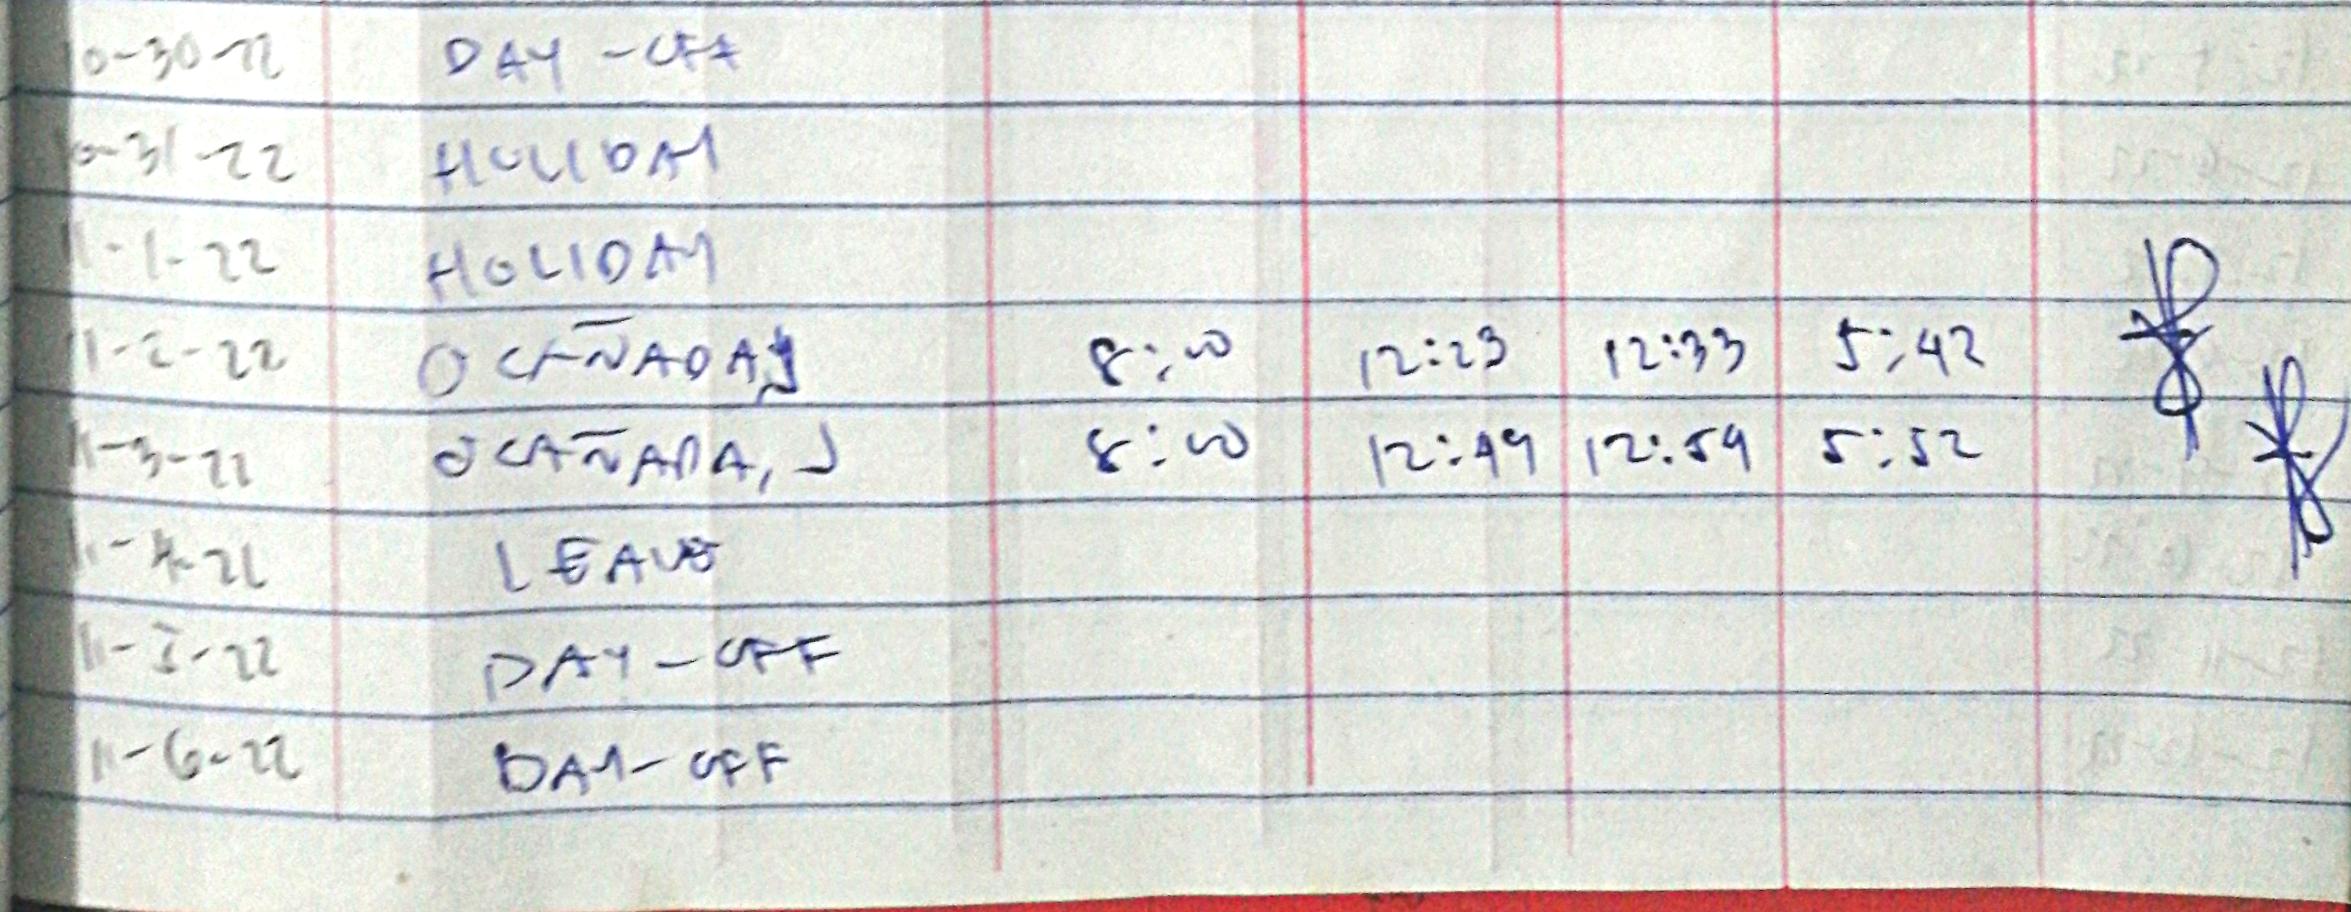 10-30-22 DAY-OFF
10-31-22 HOLIDAY
11-1-22 HOLIDAY
11-2-22 OCAÑADA, J 8:00 12:23 12:33 5:42
11-3-22 OCAÑADA, J 8:00 12:49 12:59 5:52
11-4-22 LEAVE
11-5-22 DAY-OFF
11-6-22 DAY-OFF